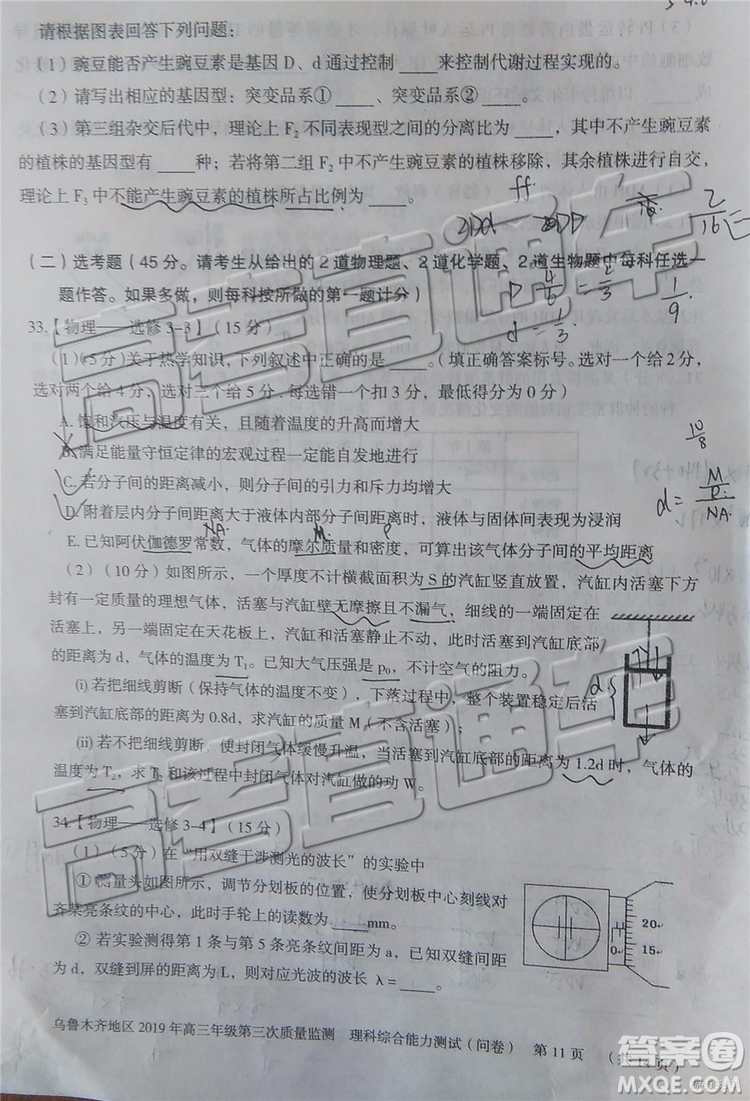 请根据图表回答下列问题：
(1) 豌豆能否产生豌豆素是基因 D、d 通过控制 ____ 来控制代谢过程实现的。
(2) 请写出相应的基因型：突变品系① ____、突变品系② ____。
(3) 第三组杂交后代中，理论上 F₂ 不同表现型之间的分离比为 ____，其中不产生豌豆素
的植株的基因型有 ____ 种；若将第二组 F₂ 中能产生豌豆素的植株移除，其余植株进行自交，
理论上 F₃ 中不能产生豌豆素的植株所占比例为 ____。
ff
DDd
2/16 =
(二) 选考题（45 分。请考生从给出的 2 道物理题、2 道化学题、2 道生物题中每科任选一
题作答。如果多做，则每科按所做的第一题计分）
D 4/6 = 2/3
d = 1/3
1/9
33.【物理——选修 3–3】（15 分）
(1)（5 分）关于热学知识，下列叙述中正确的是 ____。（填正确答案标号。选对一个给 2 分，
选对两个给 4 分，选对三个给 5 分，每选错一个扣 3 分，最低得分为 0 分）
A. 饱和汽压与温度有关，且随着温度的升高而增大
B. 满足能量守恒定律的宏观过程一定能自发地进行
C. 若分子间的距离减小，则分子间的引力和斥力均增大
D. 附着层内分子间距离大于液体内部分子间距离时，液体与固体间表现为浸润
NA. M. ρ
E. 已知阿伏伽德罗常数，气体的摩尔质量和密度，可算出该气体分子间的平均距离
10/8
(2)（10 分）如图所示，一个厚度不计横截面积为 S 的汽缸竖直放置，汽缸内活塞下方
封有一定质量的理想气体，活塞与汽缸壁无摩擦且不漏气，细线的一端固定在
活塞上，另一端固定在天花板上，汽缸和活塞静止不动，此时活塞到汽缸底部
的距离为 d，气体的温度为 T₁。已知大气压强是 p₀，不计空气的阻力。
(i) 若把细线剪断（保持气体的温度不变），下落过程中，整个装置稳定后活
塞到汽缸底部的距离为 0.8d，求汽缸的质量 M（不含活塞）；
(ii) 若不把细线剪断，使封闭气体缓慢升温，当活塞到汽缸底部的距离为 1.2d 时，气体的
温度为 T₂，求 T₂ 和该过程中封闭气体对汽缸做的功 W。
d
34.【物理——选修 3–4】（15 分）
(1)（5 分）在“用双缝干涉测光的波长”的实验中
① 测量头如图所示，调节分划板的位置，使分划板中心刻线对
齐某亮条纹的中心，此时手轮上的读数为 ____ mm。
② 若实验测得第 1 条与第 5 条亮条纹间距为 a，已知双缝间距
为 d，双缝到屏的距离为 L，则对应光波的波长 λ = ____。
0
20
15
乌鲁木齐地区 2019 年高三年级第三次质量监测 理科综合能力测试（问卷） 第 11 页
高考直通车
高考直通车
答案圈
MXQE.COM